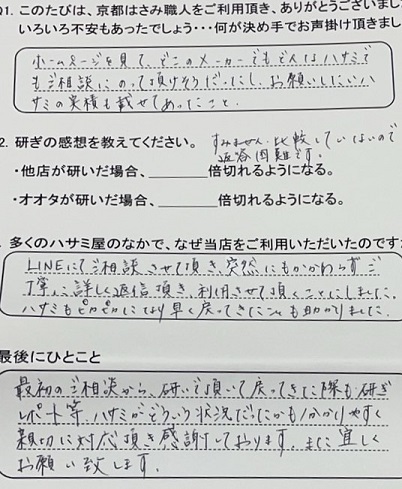 Q1. このたびは、京都はさみ職人をご利用頂き、ありがとうございまし
いろいろ不安もあったでしょう・・・何が決め手でお声掛け頂きまし
ホームページを見て、どこのメーカーでもどんなハサミで
もご相談にのって頂けそうだったし、お願いしたいハ
サミの実績も載せてあったこと。
2. 研ぎの感想を教えてください。
すみません。比較していないので
返答困難です。
・他店が研いだ場合、______倍切れるようになる。
・オオタが研いだ場合、______倍切れるようになる。
多くのハサミ屋のなかで、なぜ当店をご利用いただいたのです
LINEにてご相談させて頂き、突然にもかかわらずご
丁寧に詳しく返信頂き、利用させて頂くことにしました。
ハサミもピカピカになり早く戻ってきたことも助かりました。
最後にひとこと
最初のご相談から、研いで頂いて戻ってきた際も研ぎ
レポート等、ハサミがどういう状況だったかも分かりやすく
親切に対応頂き感謝しております。また宜しく
お願い致します。